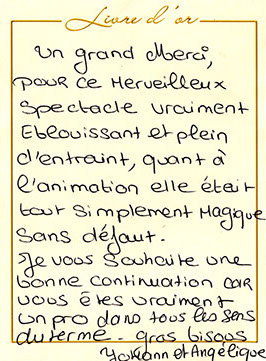 Livre d'or
Un grand Merci,
pour ce Merveilleux
Spectacle vraiment
Eblouissant et plein
d'entraint, quant à
l'animation elle était
tout Simplement Magique
Sans défaut.
Je vous souhaite une
bonne continuation car
vous êtes vraiment
un pro dans tous les sens
du terme. gros bisous
Yohann et Angélique